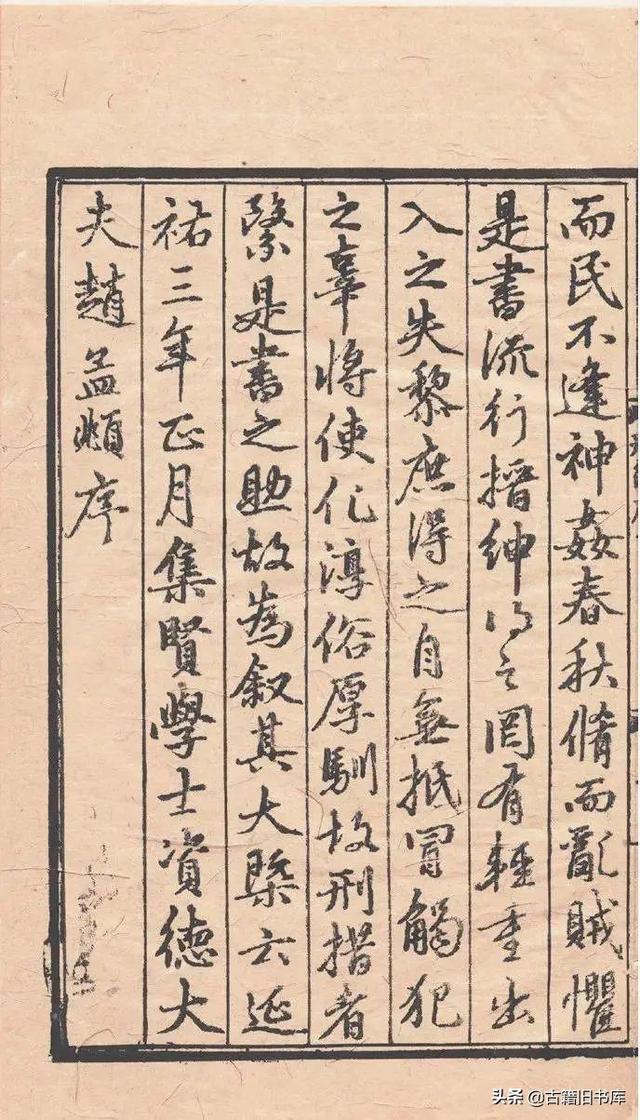 而民不逢神姦春秋脩而亂賊懼
是書流行搢紳得之罔有輕重出
入之失黎庶得之自無抵冒觸犯
之辜將使化淳俗厚馴致刑措者
繄是書之助故為叙其大槩云延
祐三年正月集賢學士資德大
夫趙孟頫序
头条 @古籍旧书库